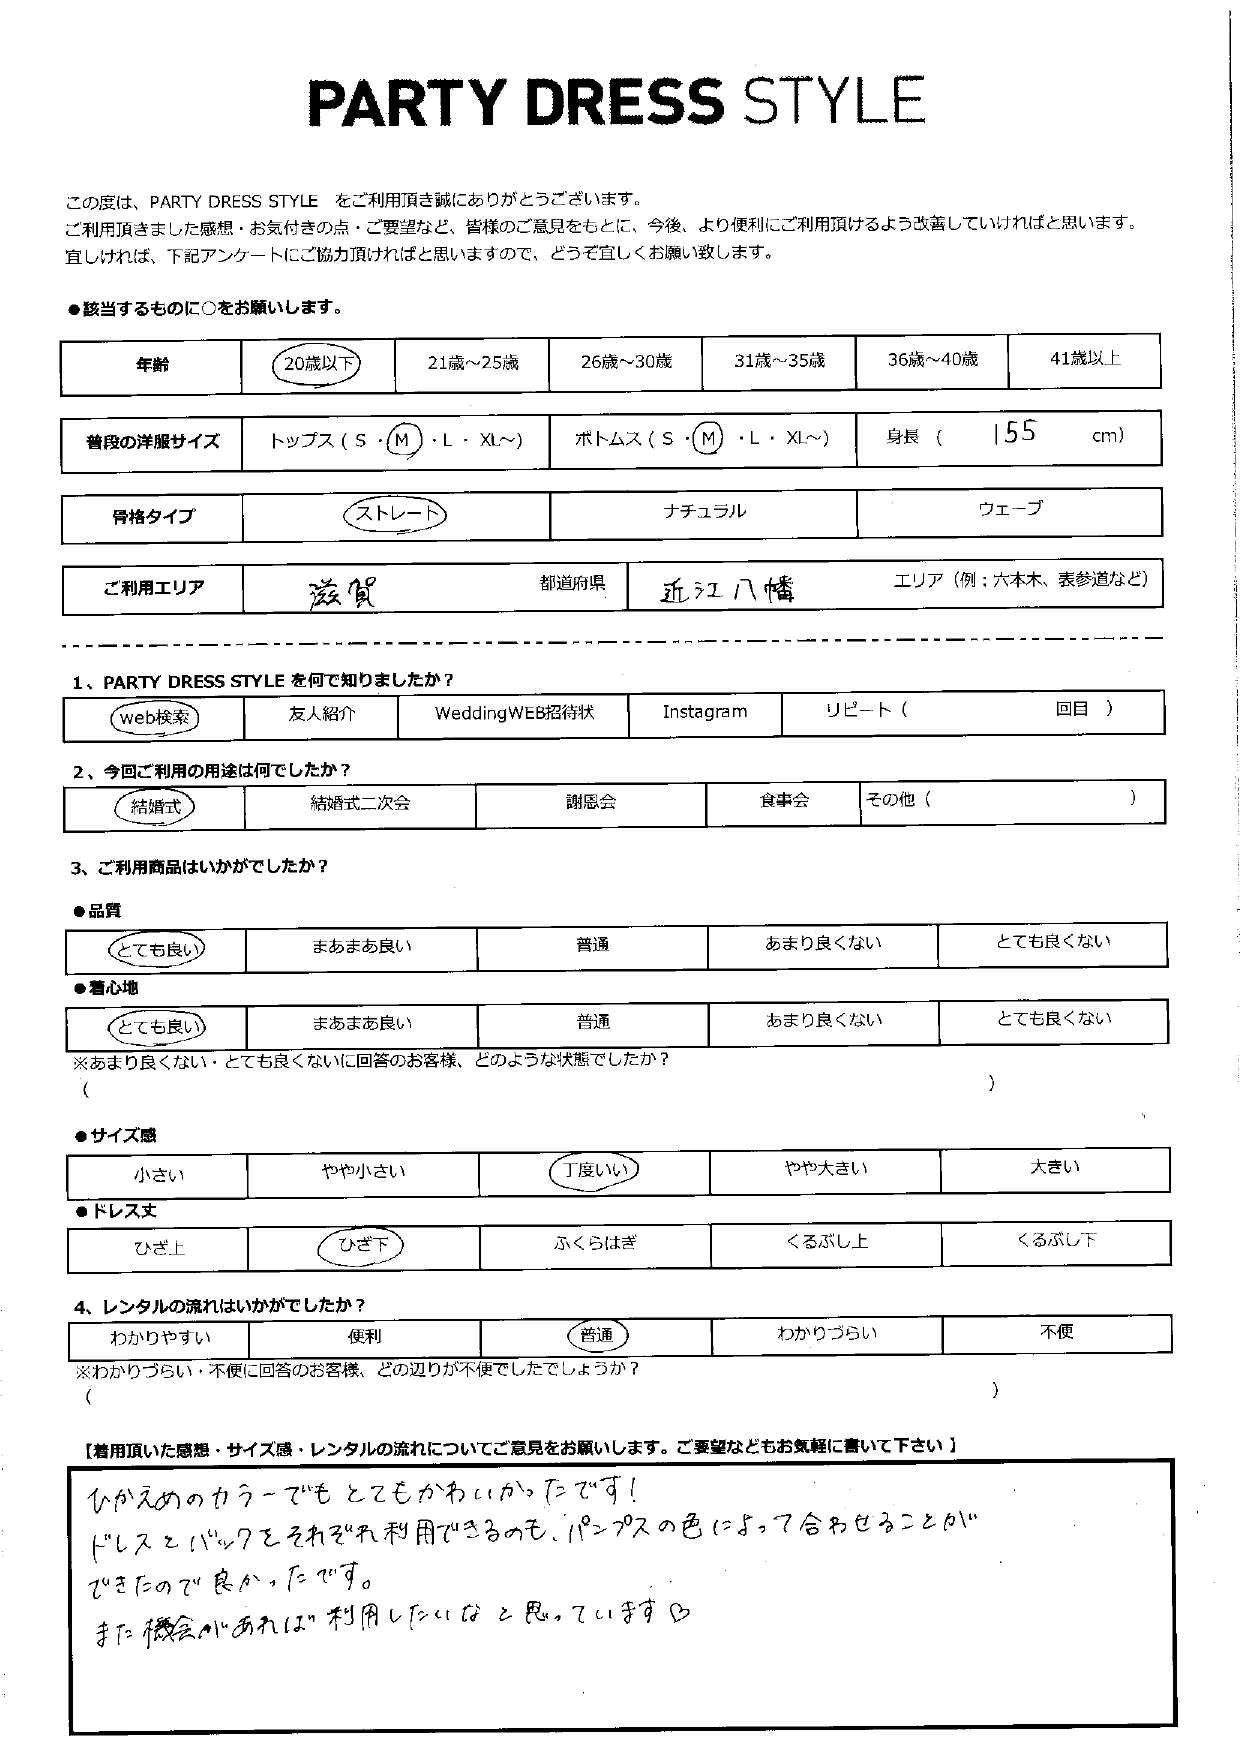 PARTY DRESS STYLE
この度は、PARTY DRESS STYLE　をご利用頂き誠にありがとうございます。
ご利用頂きました感想・お気付きの点・ご要望など、皆様のご意見をもとに、今後、より便利にご利用頂けるよう改善していければと思います。
宜しければ、下記アンケートにご協力頂ければと思いますので、どうぞ宜しくお願い致します。
●該当するものに○をお願いします。
年齢 20歳以下 21歳～25歳 26歳～30歳 31歳～35歳 36歳～40歳 41歳以上
普段の洋服サイズ トップス ( S ・ M ・ L ・ XL～) ボトムス ( S ・ M ・ L ・ XL～) 身長 ( 155 cm)
骨格タイプ ストレート ナチュラル ウェーブ
ご利用エリア 滋賀 都道府県 近江八幡 エリア（例：六本木、表参道など）
1、PARTY DRESS STYLE を何で知りましたか？
web検索 友人紹介 WeddingWEB招待状 Instagram リピート（ 回目 ）
2、今回ご利用の用途は何でしたか？
結婚式 結婚式二次会 謝恩会 食事会 その他（ ）
3、ご利用商品はいかがでしたか？
●品質
とても良い まあまあ良い 普通 あまり良くない とても良くない
●着心地
とても良い まあまあ良い 普通 あまり良くない とても良くない
※あまり良くない・とても良くないに回答のお客様、どのような状態でしたか？
（ ）
●サイズ感
小さい やや小さい 丁度いい やや大きい 大きい
●ドレス丈
ひざ上 ひざ下 ふくらはぎ くるぶし上 くるぶし下
4、レンタルの流れはいかがでしたか？
わかりやすい 便利 普通 わかりづらい 不便
※わかりづらい・不便に回答のお客様、どの辺りが不便でしたでしょうか？
（ ）
【着用頂いた感想・サイズ感・レンタルの流れについてご意見をお願いします。ご要望などもお気軽に書いて下さい 】
ひかえめのカラーでもとてもかわいかったです！
ドレスとバックをそれぞれ利用できるのも、パンプスの色によって合わせることが
できたので良かったです。
また機会があれば利用したいなと思っています♡